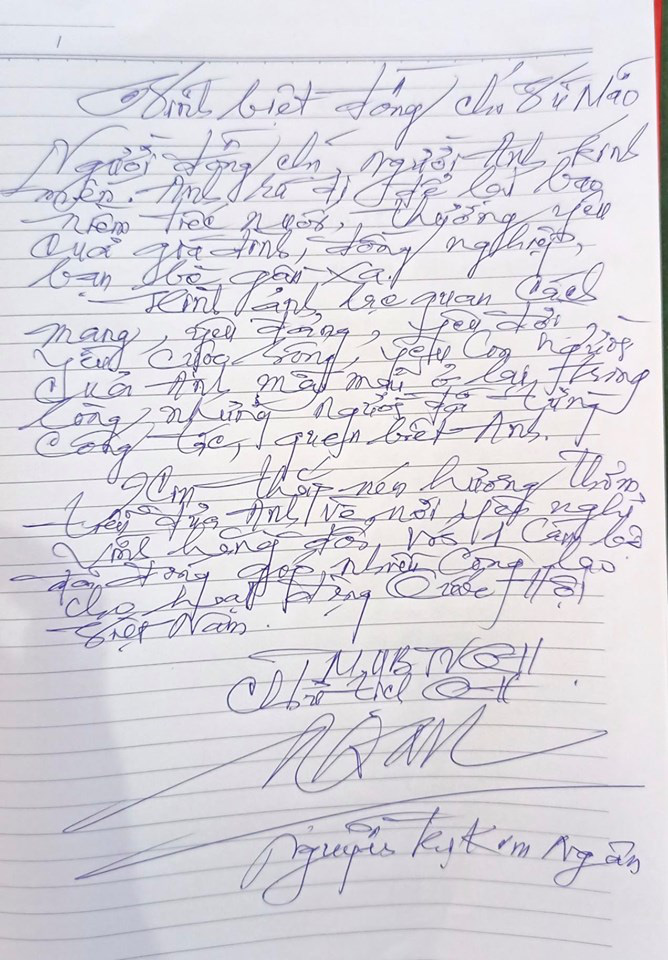 1
Vĩnh biệt đồng chí Vũ Mão
Người đồng chí, người Anh kính
mến. Anh ra đi để lại bao
niềm tiếc nuối, thương yêu
của gia đình, đồng nghiệp,
bạn bè gần xa.
Hình ảnh lạc quan Cách
mạng, yêu đảng, yêu đời
yêu cuộc sống, yêu con người
của Anh mãi mãi ở lại trong
lòng những người đã từng
công tác, quen biết Anh.
Xin thắp nén hương thơm
tiễn đưa Anh về nơi yên nghỉ
vĩnh hằng đối với 1 cán bộ
đã đóng góp nhiều công lao
cho hoạt động Quốc Hội
Việt Nam.
TM, UBTVQH
Chủ tịch QH
Ngân
Nguyễn Thị Kim Ngân